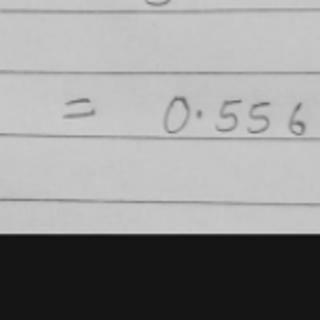 = 0.556